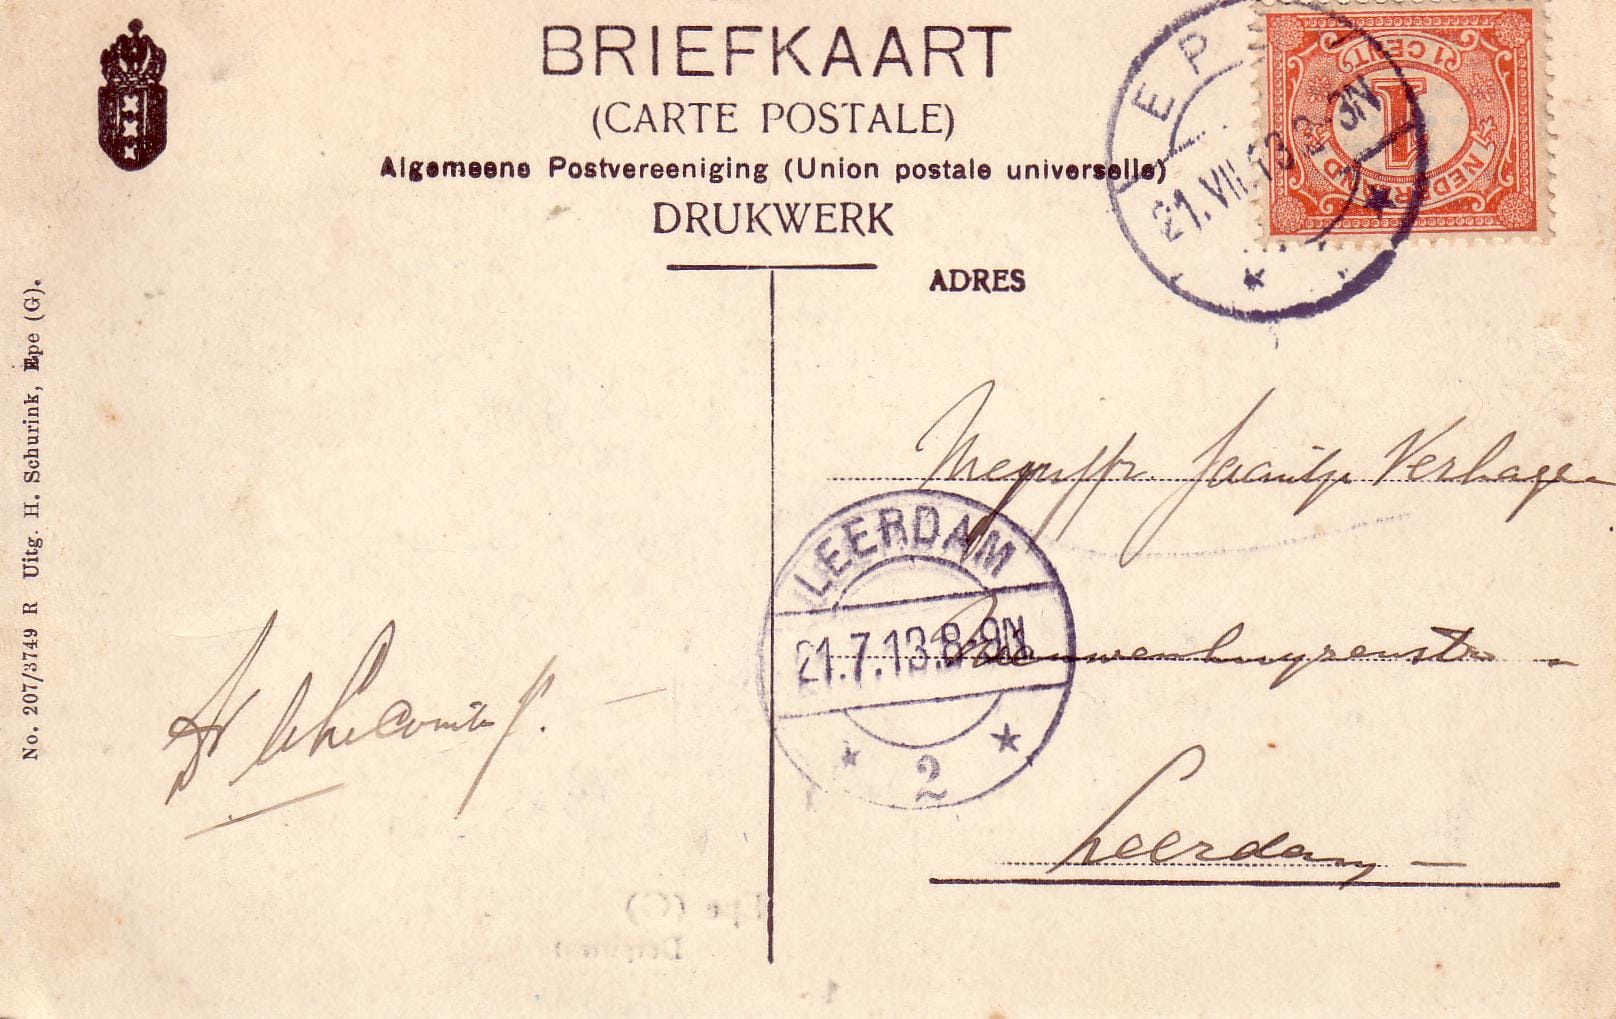 BRIEFKAART
(CARTE POSTALE)
Algemeene Postvereeniging (Union postale universelle)
DRUKWERK
ADRES
EP
21.VII.13 2-3N
1 CENT
1
NEDERLAND
No. 207/3749 R Uitg. H. Schurink, Epe (G).
Mejuffr. Jaantje Verhage
LEERDAM
21.7.13.8-9N
2
Nieuwenhuyzenstr
Leerdam
Epe (G)